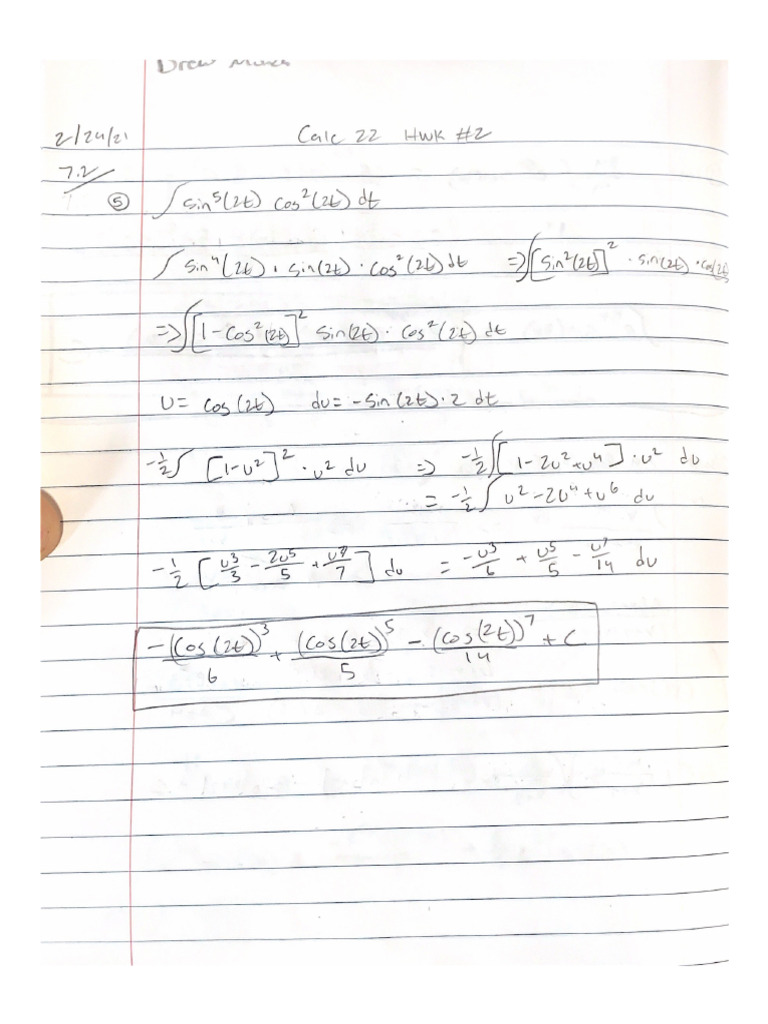 Drew
2/24/21 Calc 22 Hwk #2
7.2
⑤ ∫ sin⁵(2t) cos²(2t) dt
∫ sin⁴(2t) · sin(2t) · cos²(2t) dt => ∫[sin²(2t)]² · sin(2t) · cos(2t
=> ∫[1-cos²(2t)]² sin(2t) · cos²(2t) dt
U = cos(2t) du = -sin(2t)·2 dt
-1/2 ∫ [1-u²]² · u² du => -1/2 ∫[1-2u²+u⁴] · u² du
= -1/2 ∫ u²-2u⁴+u⁶ du
-1/2 [u³/3 - 2u⁵/5 + u⁷/7] du = -u³/6 + u⁵/5 - u⁷/14 du
-(cos(2t))³/6 + (cos(2t))⁵/5 - (cos(2t))⁷/14 + C